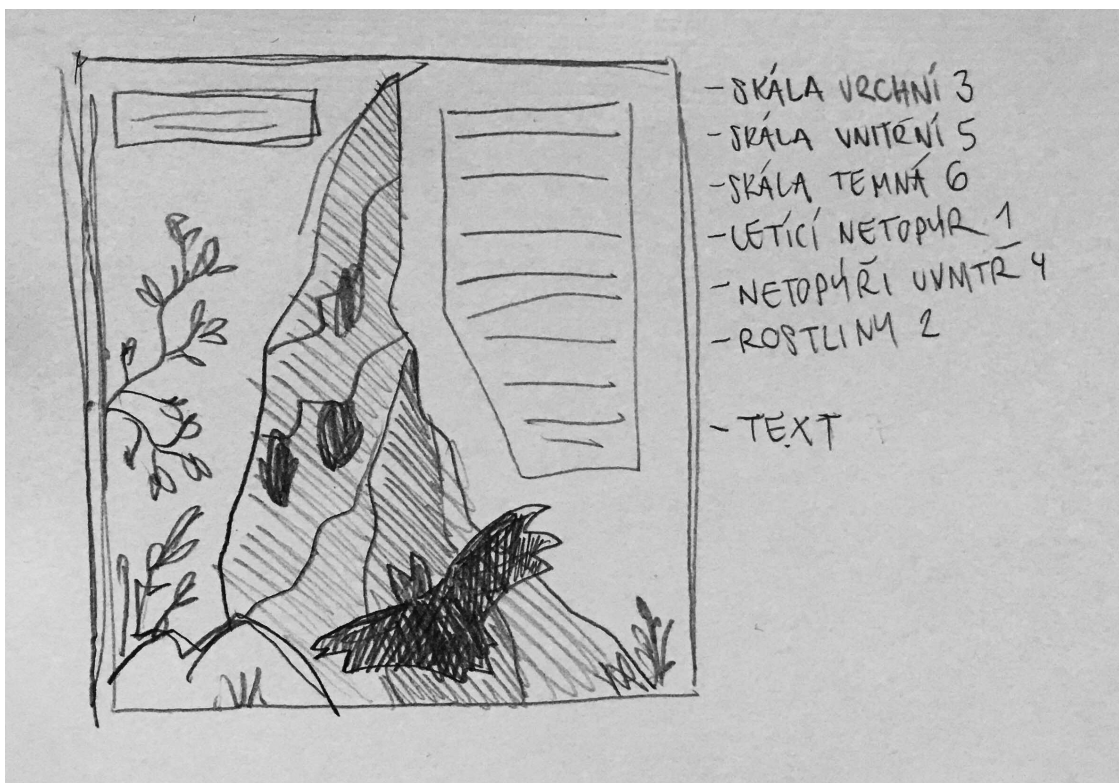 - SKÁLA VRCHNÍ 3
- SKÁLA VNITŘNÍ 5
- SKÁLA TEMNÁ 6
- LETÍCÍ NETOPÝR 1
- NETOPÝŘI UVNITŘ 4
- ROSTLINY 2
- TEXT